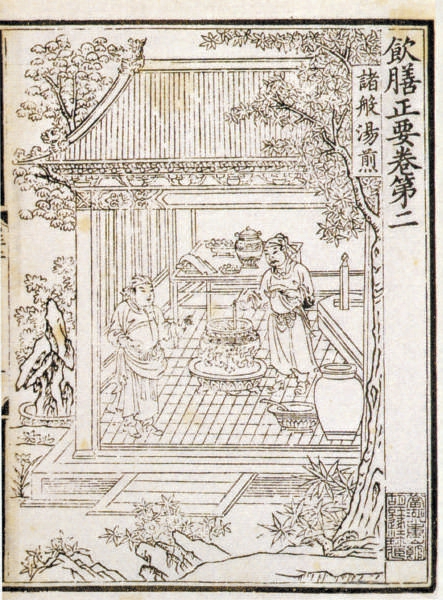 飲膳正要卷第二
諸般湯煎